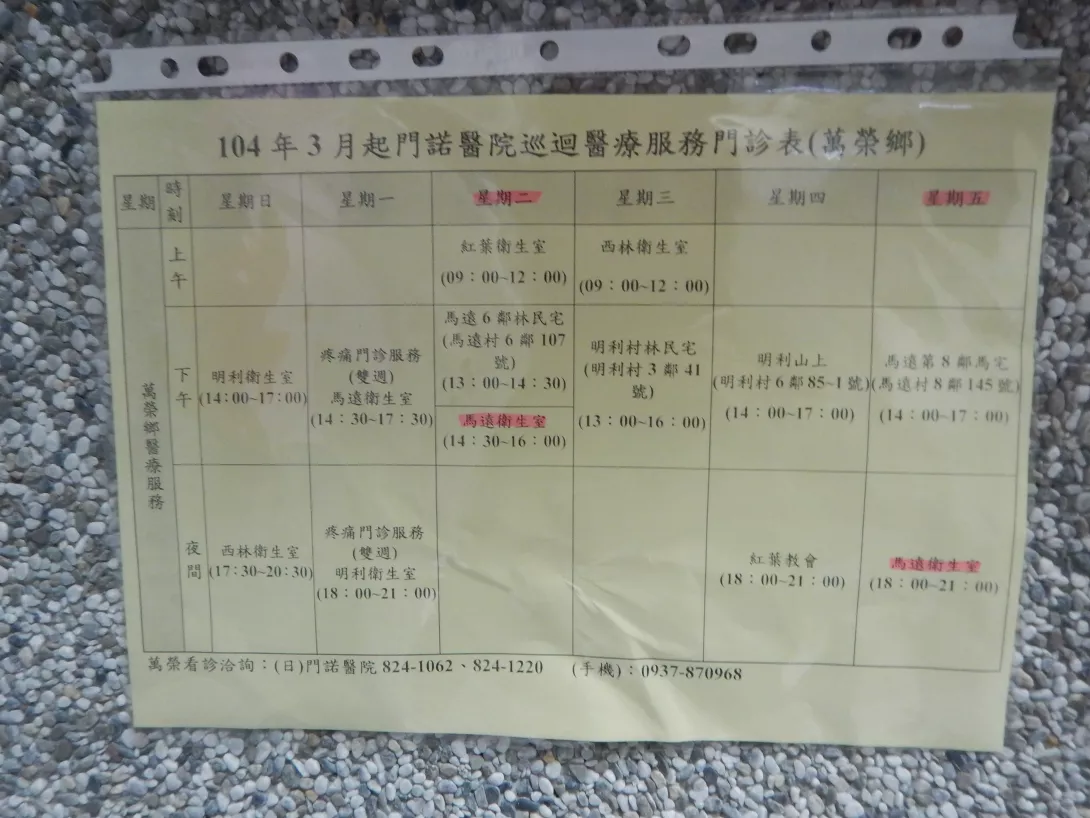 104 年 3 月起門諾醫院巡迴醫療服務門診表(萬榮鄉)
星期 時刻 星期日 星期一 星期二 星期三 星期四 星期五
萬榮鄉醫療服務
上午
紅葉衛生室
(09：00~12：00)
西林衛生室
(09：00~12：00)
下午
明利衛生室
(14:00~17:00)
疼痛門診服務
(雙週)
馬遠衛生室
(14：30~17：30)
馬遠 6 鄰林民宅
(馬遠村 6 鄰 107
號)
(13：00~14：30)
馬遠衛生室
(14：30~16：00)
明利村林民宅
(明利村 3 鄰 41
號)
(13：00~16：00)
明利山上
(明利村 6 鄰 85~1 號)
(14：00~17：00)
馬遠第 8 鄰馬宅
(馬遠村 8 鄰 145 號)
(14：00~17：00)
夜間
西林衛生室
(17:30~20:30)
疼痛門診服務
(雙週)
明利衛生室
(18：00~21：00)
紅葉教會
(18：00~21：00)
馬遠衛生室
(18：00~21：00)
萬榮看診洽詢：(日)門諾醫院 824-1062、824-1220 (手機)：0937-870968